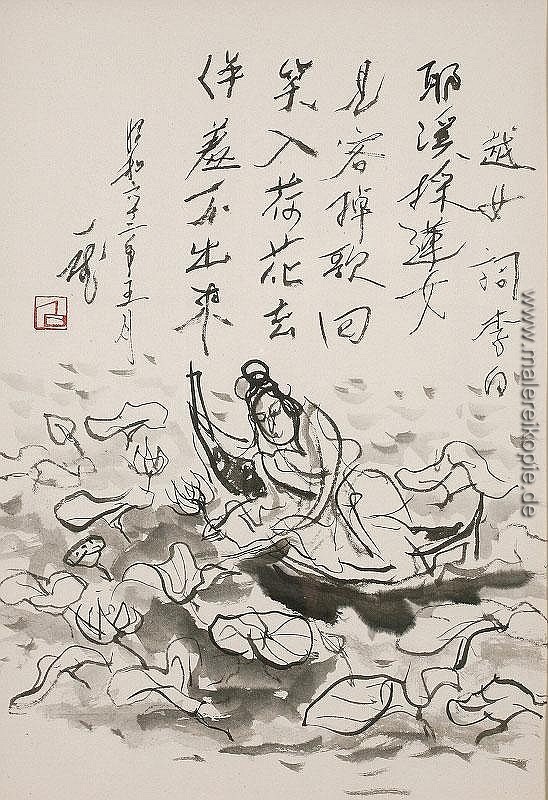 越女詞 李白
耶溪採蓮女
見客棹歌回
笑入荷花去
佯羞不出来
昭和六十二年五月
www.malereikopie.de